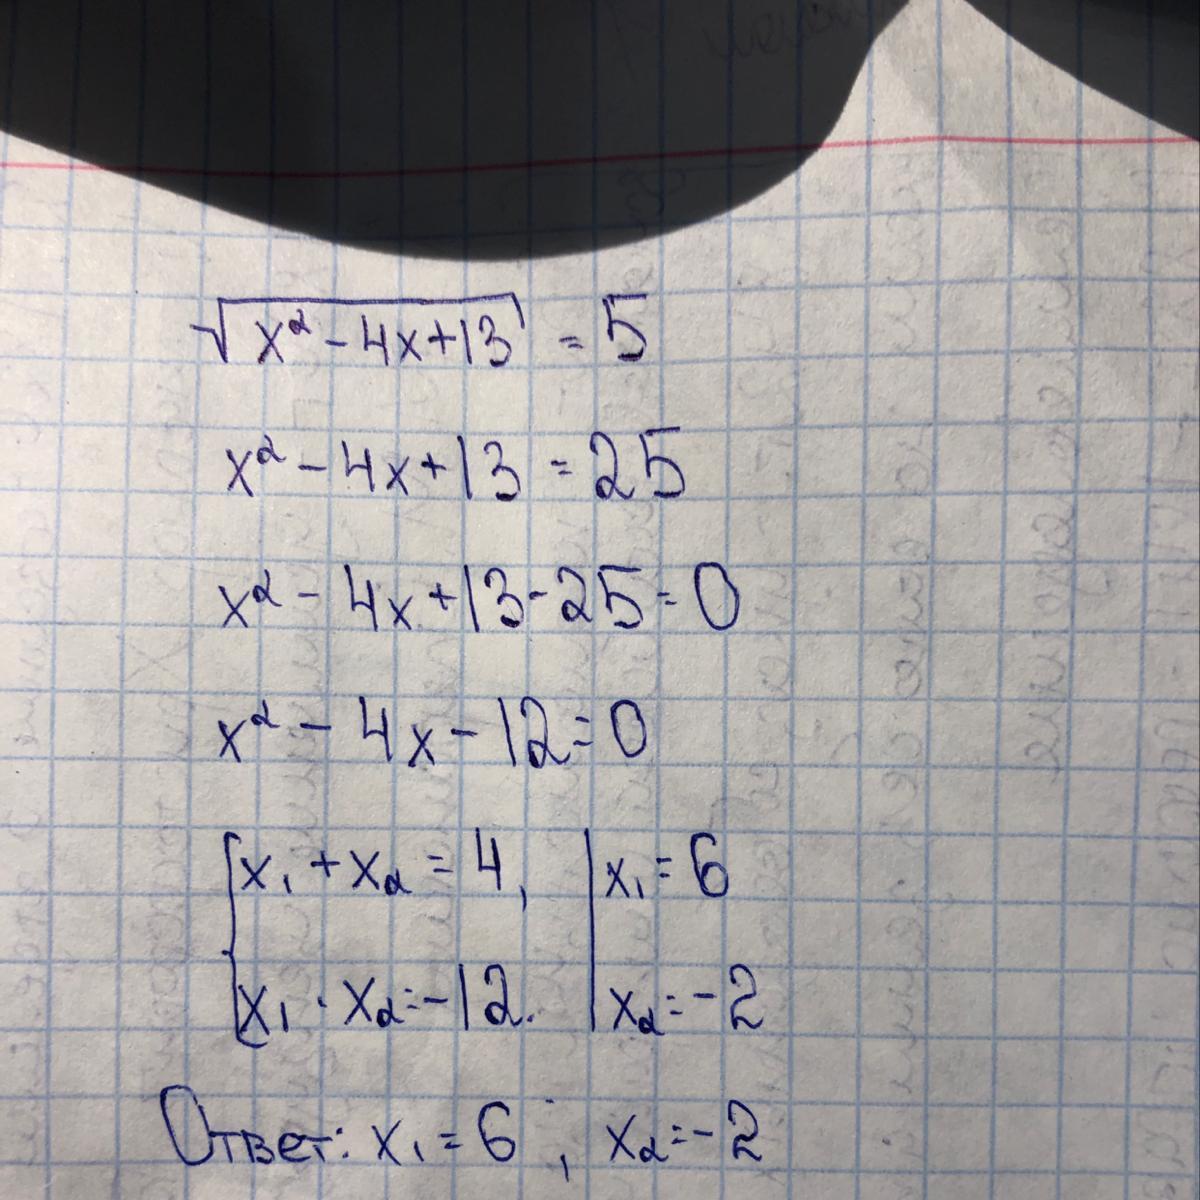 √(x² - 4x + 13) = 5
x² - 4x + 13 = 25
x² - 4x + 13 - 25 = 0
x² - 4x - 12 = 0
{ x₁ + x₂ = 4, | x₁ = 6
x₁ · x₂ = -12. | x₂ = -2
Ответ: x₁ = 6 ; x₂ = -2